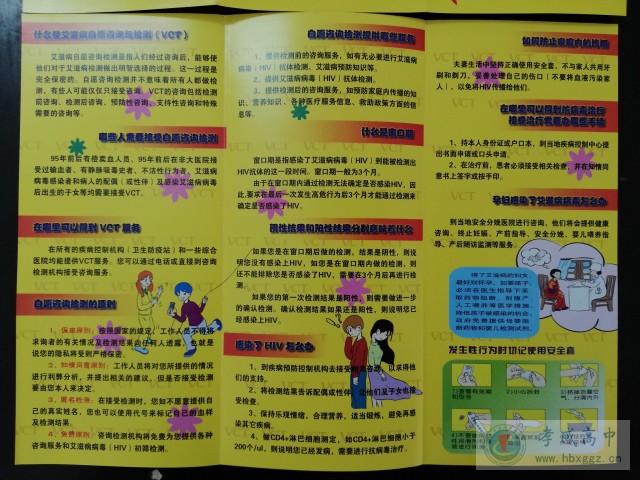 什么是艾滋病自愿咨询与检测（VCT）
艾滋病自愿咨询检测是指人们经过咨询后，能够使
他们对于艾滋病检测做出明智选择的过程。这一过程是
完全保密的。自愿咨询并不意味着所有人都做检
测，有些人可能仅仅只接受咨询。VCT的咨询包括检测
前咨询、检测后咨询、预防性咨询、支持性咨询和特殊
需要的咨询等。
哪些人需要接受自愿咨询检测
95年前后有偿卖血人员、95年前后在非大医院接
受过输血者、有静脉吸毒史者、不洁性行为者、艾滋病
病毒感染者和病人的配偶（或性伴）及感染艾滋病病毒
后出生的子女等均需要接受。
在哪里可以得到VCT服务
在所有的疾病控制机构（卫生防疫站）和一些综合
医院均能提供VCT服务。您可以通过电话或直接到咨询
检测机构接受咨询服务。
自愿咨询检测的原则
1、保密原则：按照国家的规定，工作人员不得将
求询者的有关情况及检测结果向任何人透露，也就是
说您的隐私将受到严格保密。
2、知情同意原则：工作人员将对您所提供的情况
进行利弊分析，并提出相关的建议。但是否接受检测
要由您本人来决定。
3、匿名检务：在接受检测时，您如不愿意提供自
己的真实姓名，您也可以使用代号来标记自己的血样
及检测结果。
4、免费原则：咨询检测机构将免费为您提供各种
咨询服务和艾滋病病毒（HIV）初筛检测。
自愿咨询检测提供哪些服务
1、提供检测前的咨询服务，如有无必要进行艾滋病
（HIV）抗体检测、艾滋病预防知识等。
2、提供艾滋病病毒（HIV）抗体检测。
3、提供检测后的咨询服务，如预防家庭内传播的知
识、营养知识、各种医疗服务信息、救助政策方面的信
息等。
什么是窗口期
窗口期是指感染了艾滋病病毒（HIV）到能被检测出
HIV抗体的这一段时间。窗口期一般为3个月。
由于在窗口期内通过检测无法确定是否感染HIV，因
此，要求在最后一次发生高危行为后3个月才能通过检测来
确定是否感染了HIV。
阴性结果和阳性结果分别意味着什么
如果您是在窗口期后做的检测，结果是阴性，则说
明您没有感染上HIV。如果您是在窗口期内做的检测，则
还不能排除您是否感染了HIV，需要在3个月后再进行检
测。
如果您的第一次检测结果是阳性，则需要做进一步
的确认检测。确认检测结果如果还是阳性，则说明您已
经感染上HIV。
感染了HIV怎么办
1、到疾病预防控制机构去接受相关咨询，以求得他
们的支持。
2、将检测结果告诉配偶或性伴，让他们及子女也接
受检查。
3、保持乐观情绪，合理营养，适当锻炼，避免再感
染其它疾病。
4、做CD4+淋巴细胞测定，如CD4+淋巴细胞小于
200个/ul，则说明您已经发病，需要进行抗病毒治疗。
如何防止家庭内的传播
夫妻生活中坚持正确使用安全套，不与家人共用牙
刷和剃刀，妥善处理自己的伤口（不要将血液污染家
人），以免将HIV传播给他们。
在哪里可以得到抗病毒治疗
接受治疗要办哪些手续
1、持本人身份证或户口本，到当地疾病控制中心提
出书面申请或口头申请。
2、在治疗前，患者必须接受相关检查，并在知情同
意书上签字或按手印。
孕妇感染了艾滋病病毒怎么办
到当地安全分娩医院进行咨询，他们将会提供健康
咨询、终止妊娠、产前指导、安全分娩、婴儿喂养指
导、产后随访监测等服务。
得了艾滋病的妇女
最好别怀孕。如要孩子，
必须在医生指导下采
取药物阻断、剖腹产、
人工喂养等医学措施，
降低孩子被感染的机会。
政府免费提供母婴阻
断药物和婴儿检测试剂。
发生性行为时切记使用安全套
孝昌高中
www.hbxggz.cn